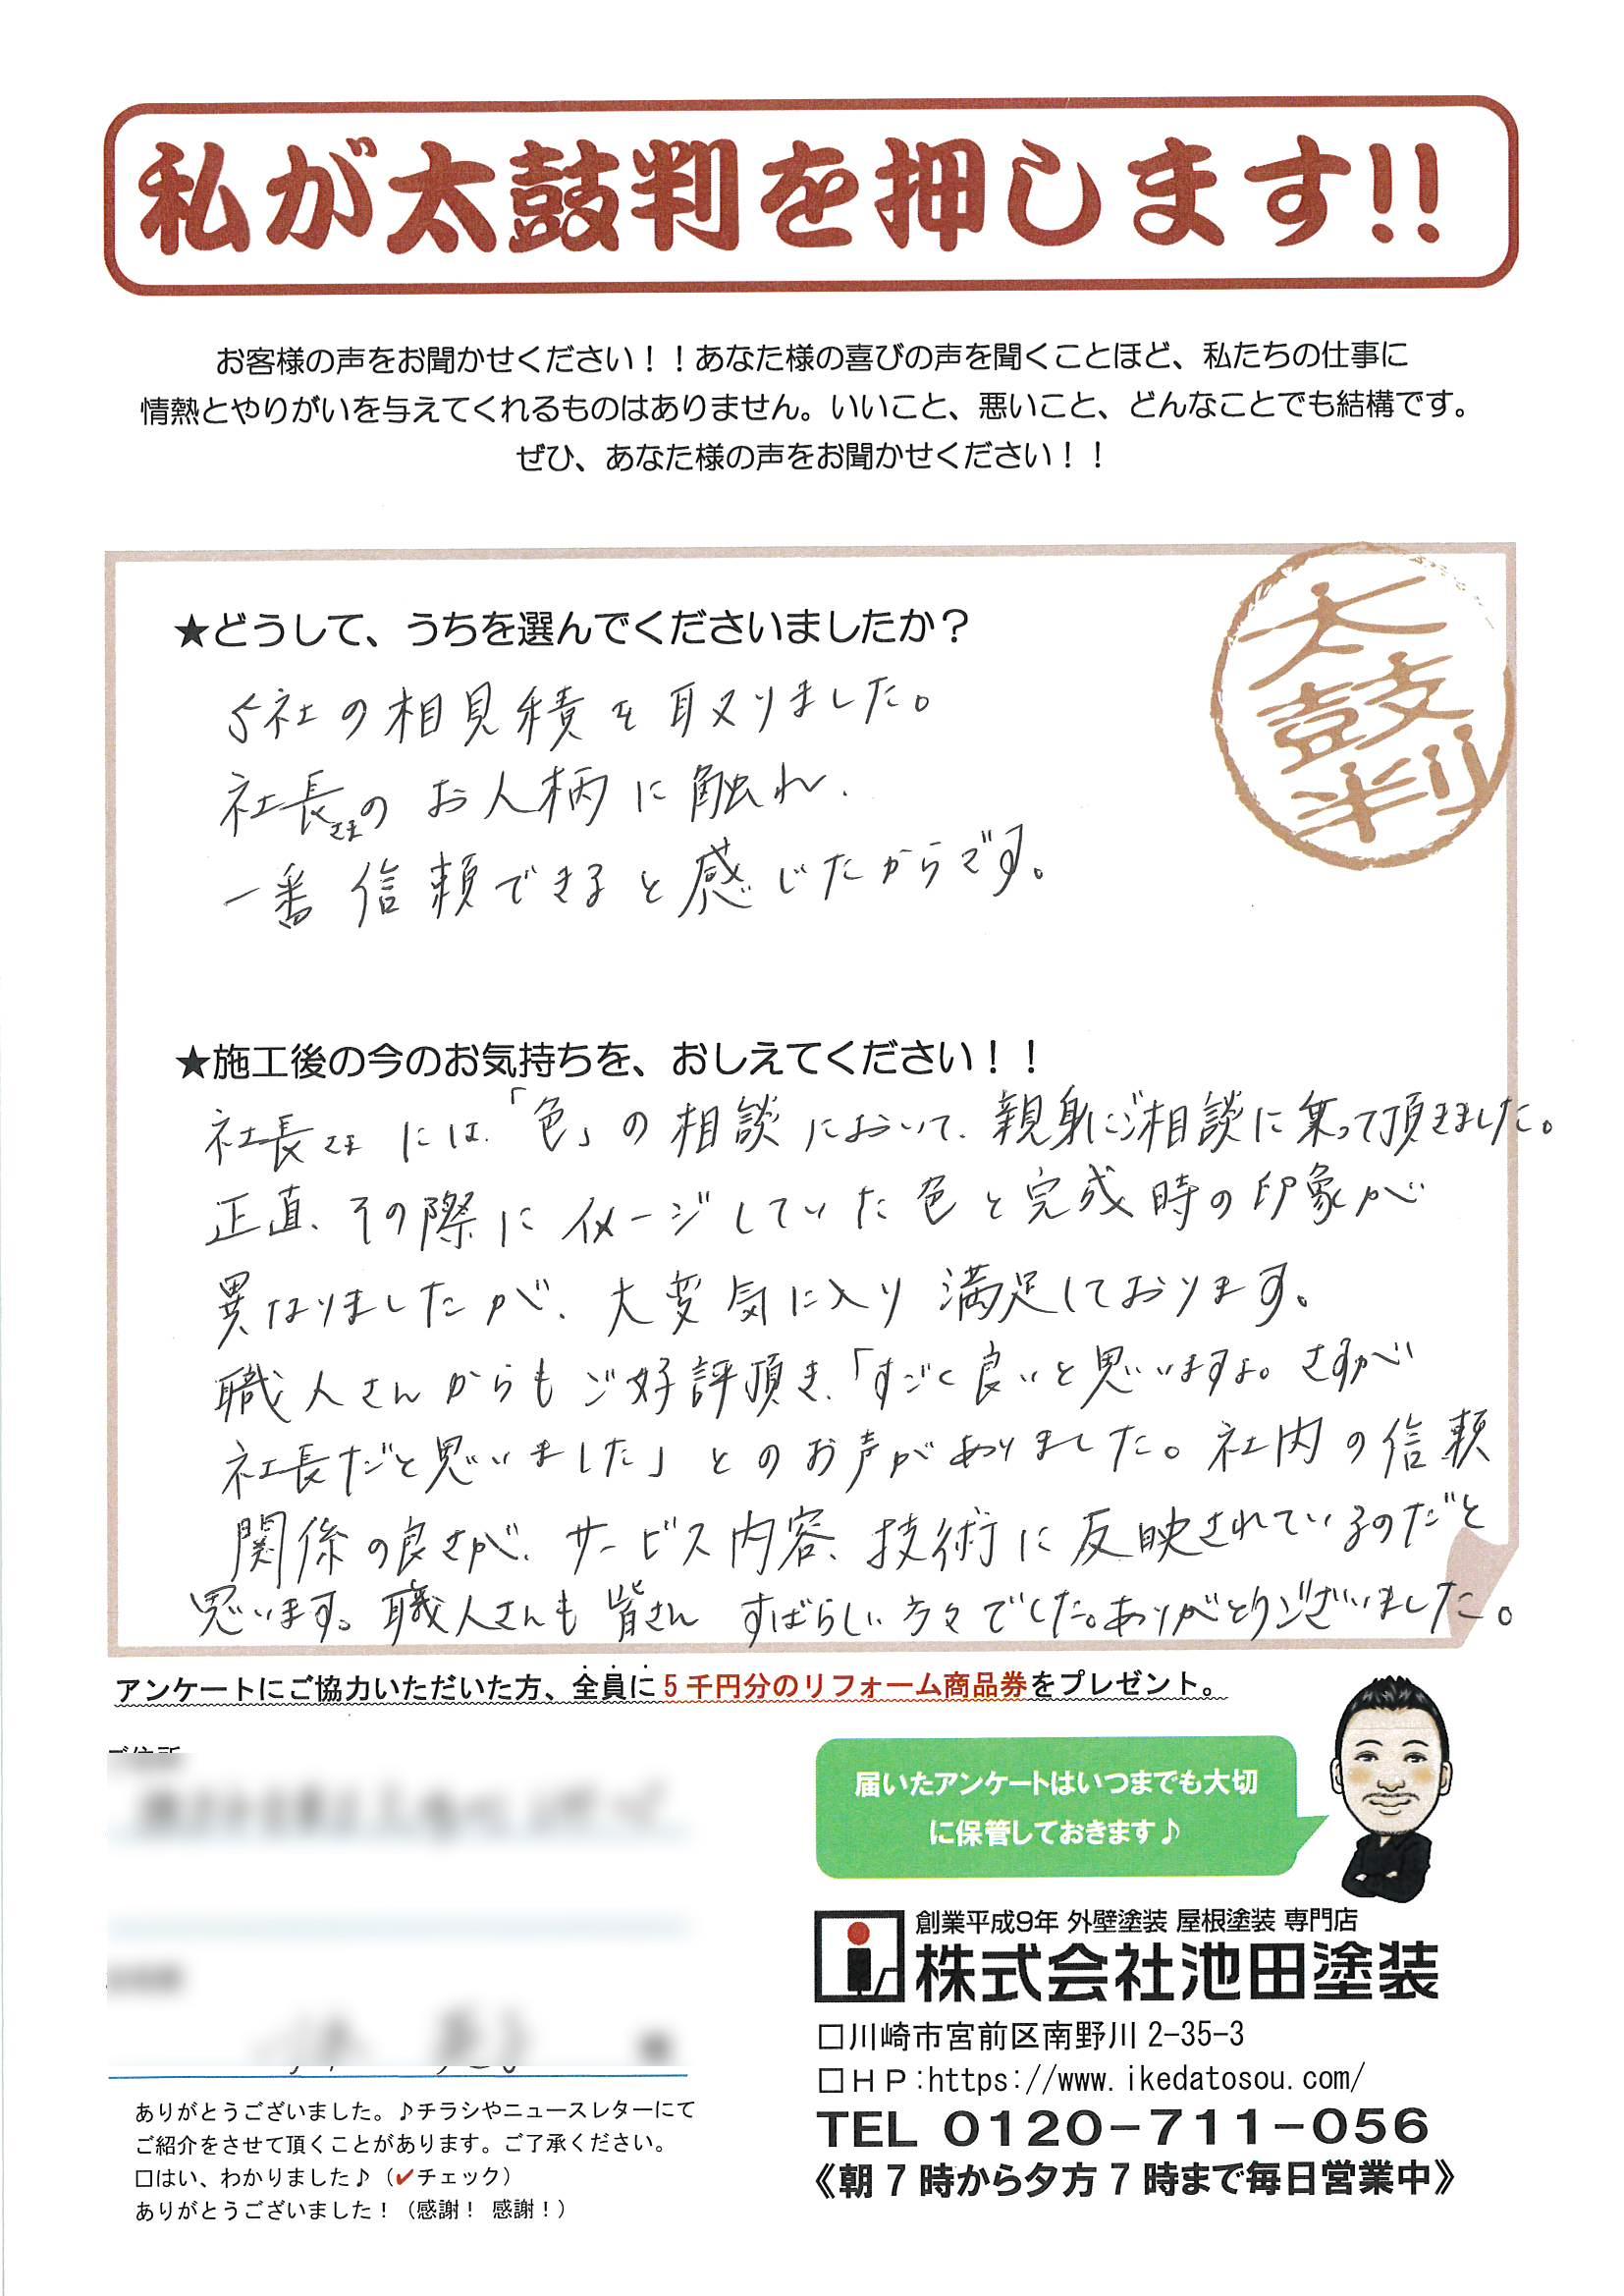 私が太鼓判を押します!!
お客様の声をお聞かせください！！あなた様の喜びの声を聞くことほど、私たちの仕事に
情熱とやりがいを与えてくれるものはありません。いいこと、悪いこと、どんなことでも結構です。
ぜひ、あなた様の声をお聞かせください！！
太
鼓
判
★どうして、うちを選んでくださいましたか？
5社の相見積を取りました。
社長さまのお人柄に触れ、
一番信頼できると感じたからです。
★施工後の今のお気持ちを、おしえてください！！
社長さまには、「色」の相談において、親身にご相談に乗って頂きました。
正直、その際にイメージしていた色と完成時の印象が
異なりましたが、大変気に入り満足しております。
職人さんからもご好評頂き、「すごく良いと思いますよ。さすが
社長だと思いました」とのお声がありました。社内の信頼
関係の良さが、サービス内容、技術に反映されているのだと
思います。職人さんも皆さんすばらしい方々でした。ありがとうございました。
アンケートにご協力いただいた方、全員に5千円分のリフォーム商品券をプレゼント。
ご住所
届いたアンケートはいつまでも大切
に保管しておきます♪
創業平成9年 外壁塗装 屋根塗装 専門店
株式会社池田塗装
□川崎市宮前区南野川2-35-3
□HP:https://www.ikedatosou.com/
TEL 0120-711-056
《朝7時から夕方7時まで毎日営業中》
ありがとうございました。♪チラシやニュースレターにて
ご紹介をさせて頂くことがあります。ご了承ください。
□はい、わかりました♪（✔チェック）
ありがとうございました！（感謝！ 感謝！）